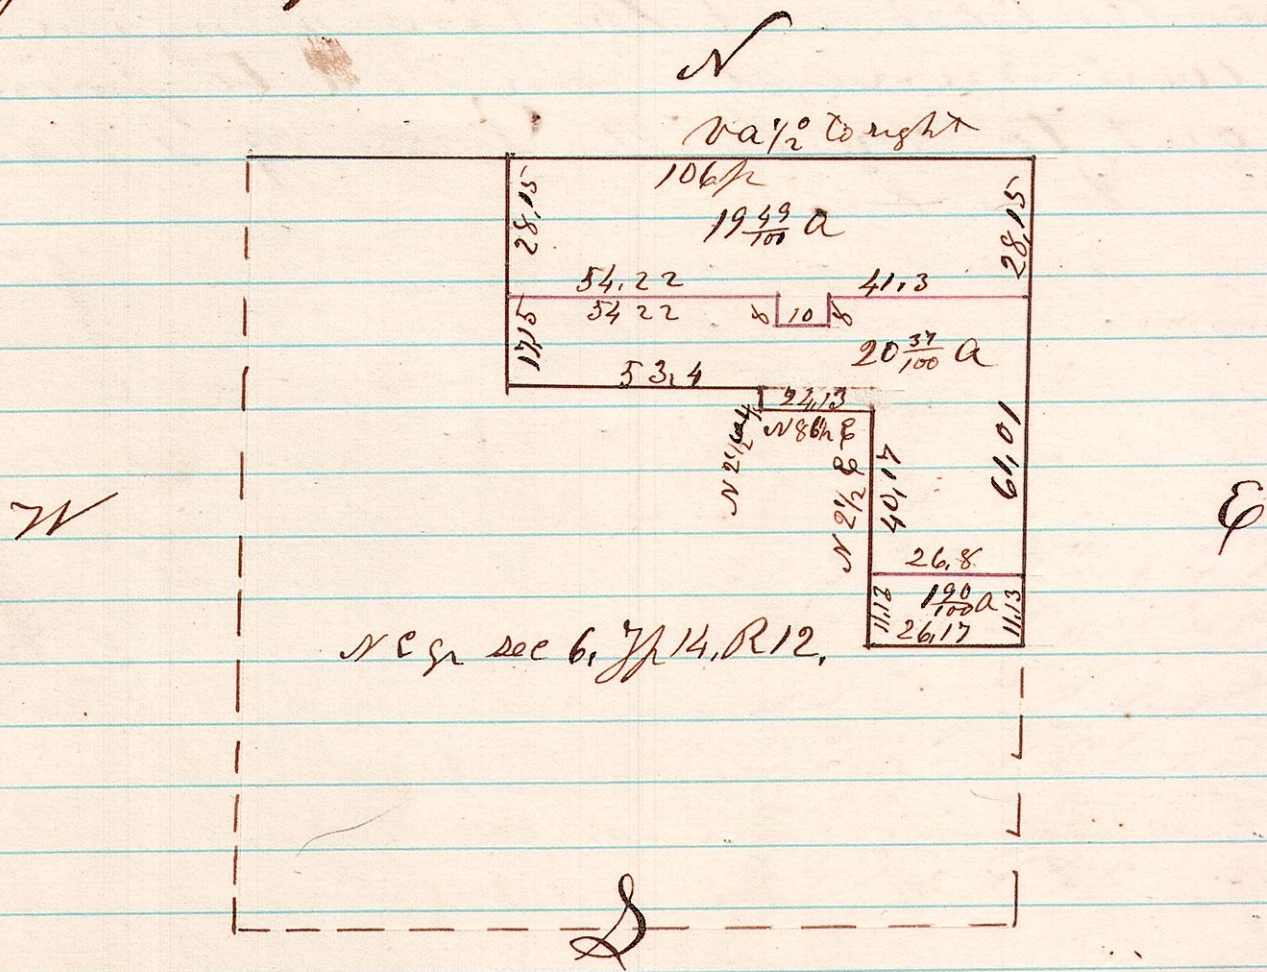 N
Va 1/2° to right
106 p
28,15
19 49/100 a
28,15
54,22
41,3
54 22
8
10
8
17,15
20 37/100 a
53,4
4
24,13
N 86 1/2 E
N 2 1/2 W
N 2 1/2 E
40,17
61,01
W
E
26,8
11,13
1 90/100 a
11,13
26,17
N E qr sec 6, Tp 14, R 12,
S